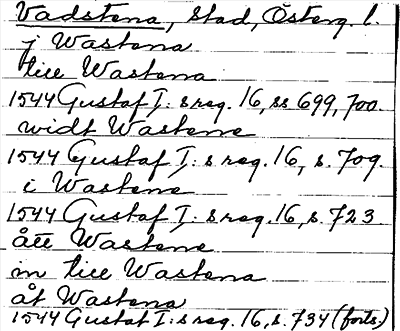 Vadstena, stad, Österg. l.
j Wastena
till Wastena
1544 Gustaf I:s reg. 16, ss 699, 700.
widt Wastene
1544 Gustaf I:s reg. 16, s. 709.
i Wastene
1544 Gustaf I:s reg. 16, s. 723
ått Wastene
in till Wastena
åt Wastena
1544 Gustaf I:s reg. 16, s. 734 (forts)